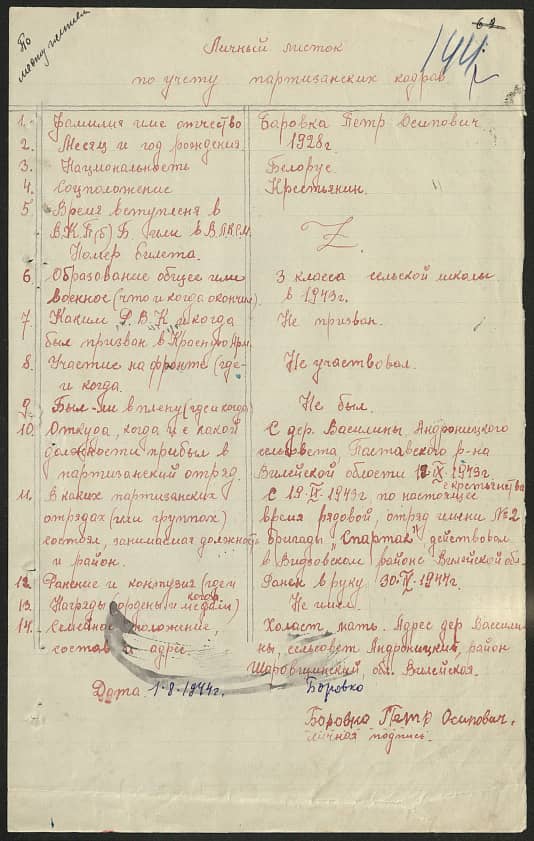 По
62
144
Личный листок
по учету партизанских кадров
1. Фамилия име отчество Баровка Петр Осипович
2. Месяц и год рождения. 1928г.
3. Национальность Белорус.
4. Соцположение Крестьянин.
5. Время вступленя в
В.К.П(б)Б или в В.ЛКСМ. Z.
Номер билета.
6. Образование общее или 3 класса сельской школы
военное (что и когда окончил). в 1943г.
7. Каким Р.В.К и когда Не призван.
был призван в Красную Арм.
8. Участие на фронте (где- Не участвовал.
и когда.
9. Был-ли в плену (где и когда) Не был.
10. Откуда, когда и с какой С дер. Василины, Андроницкого
должности прибыл в сельсовета Паставского р-на
партизанский отряд. Вилейской области 12 IX 1943г.
с крестьянства
11. В каких партизанских С 19 IX 1943г. по настоящее
отрядах (или группах) время рядовой, отряд имени №2
состоял, занимаемая должность Бригады "Спартак" действовал
и район. в Видзовском районе Вилейской обл.
12. Ранение и контузия (где и Ранен в руку 30 IV 1944г.
когда
13. Награды (ордены и медали) Не имел.
14. Семейное положение, Холаст, мать. Адрес дер Василин-
состав и адрес ны, сельсовет Андроницкий, район
Шарковщинский, обл. Вилейская.
Дата 1.8.1944г. Боровко
Боровка Петр Осипович.
личная подпись.